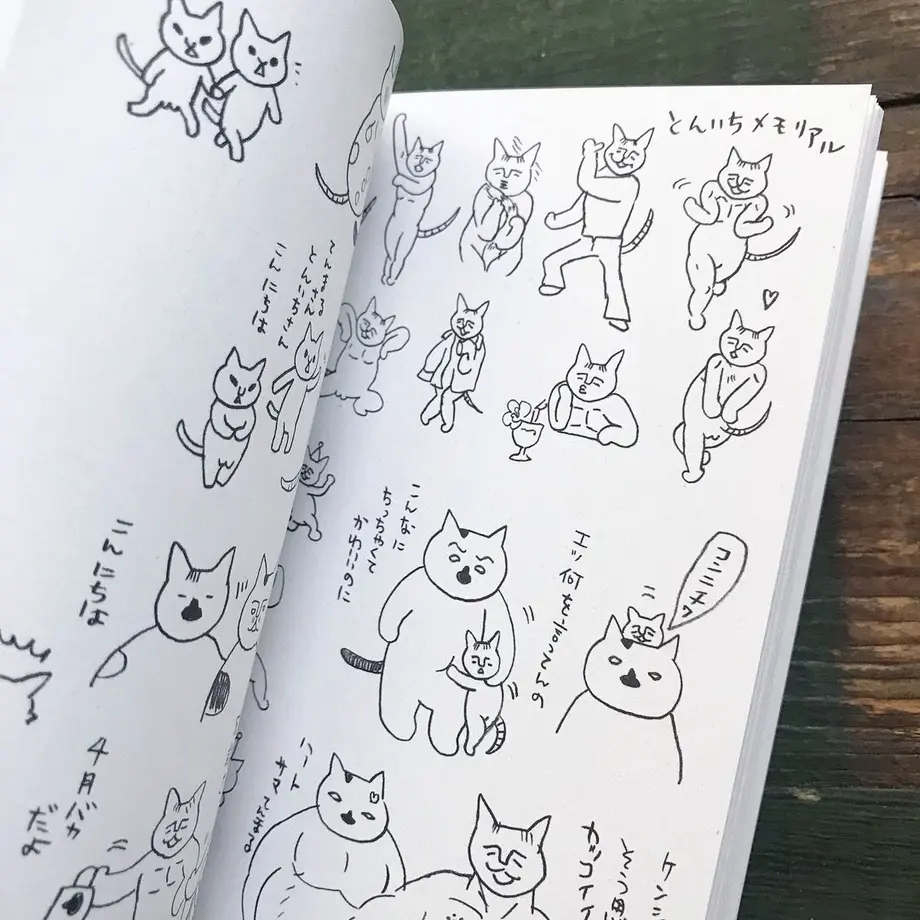 とんいちメモリアル
コンニチハ
エッ何を言ってんの
こんなに
ちっちゃくて
かわいいのに
ケンミ
そう思
カッコイイ
ハート
てんまる
さん
とんいちさん
こんにちは
こんにちは
4月バカ
だよ